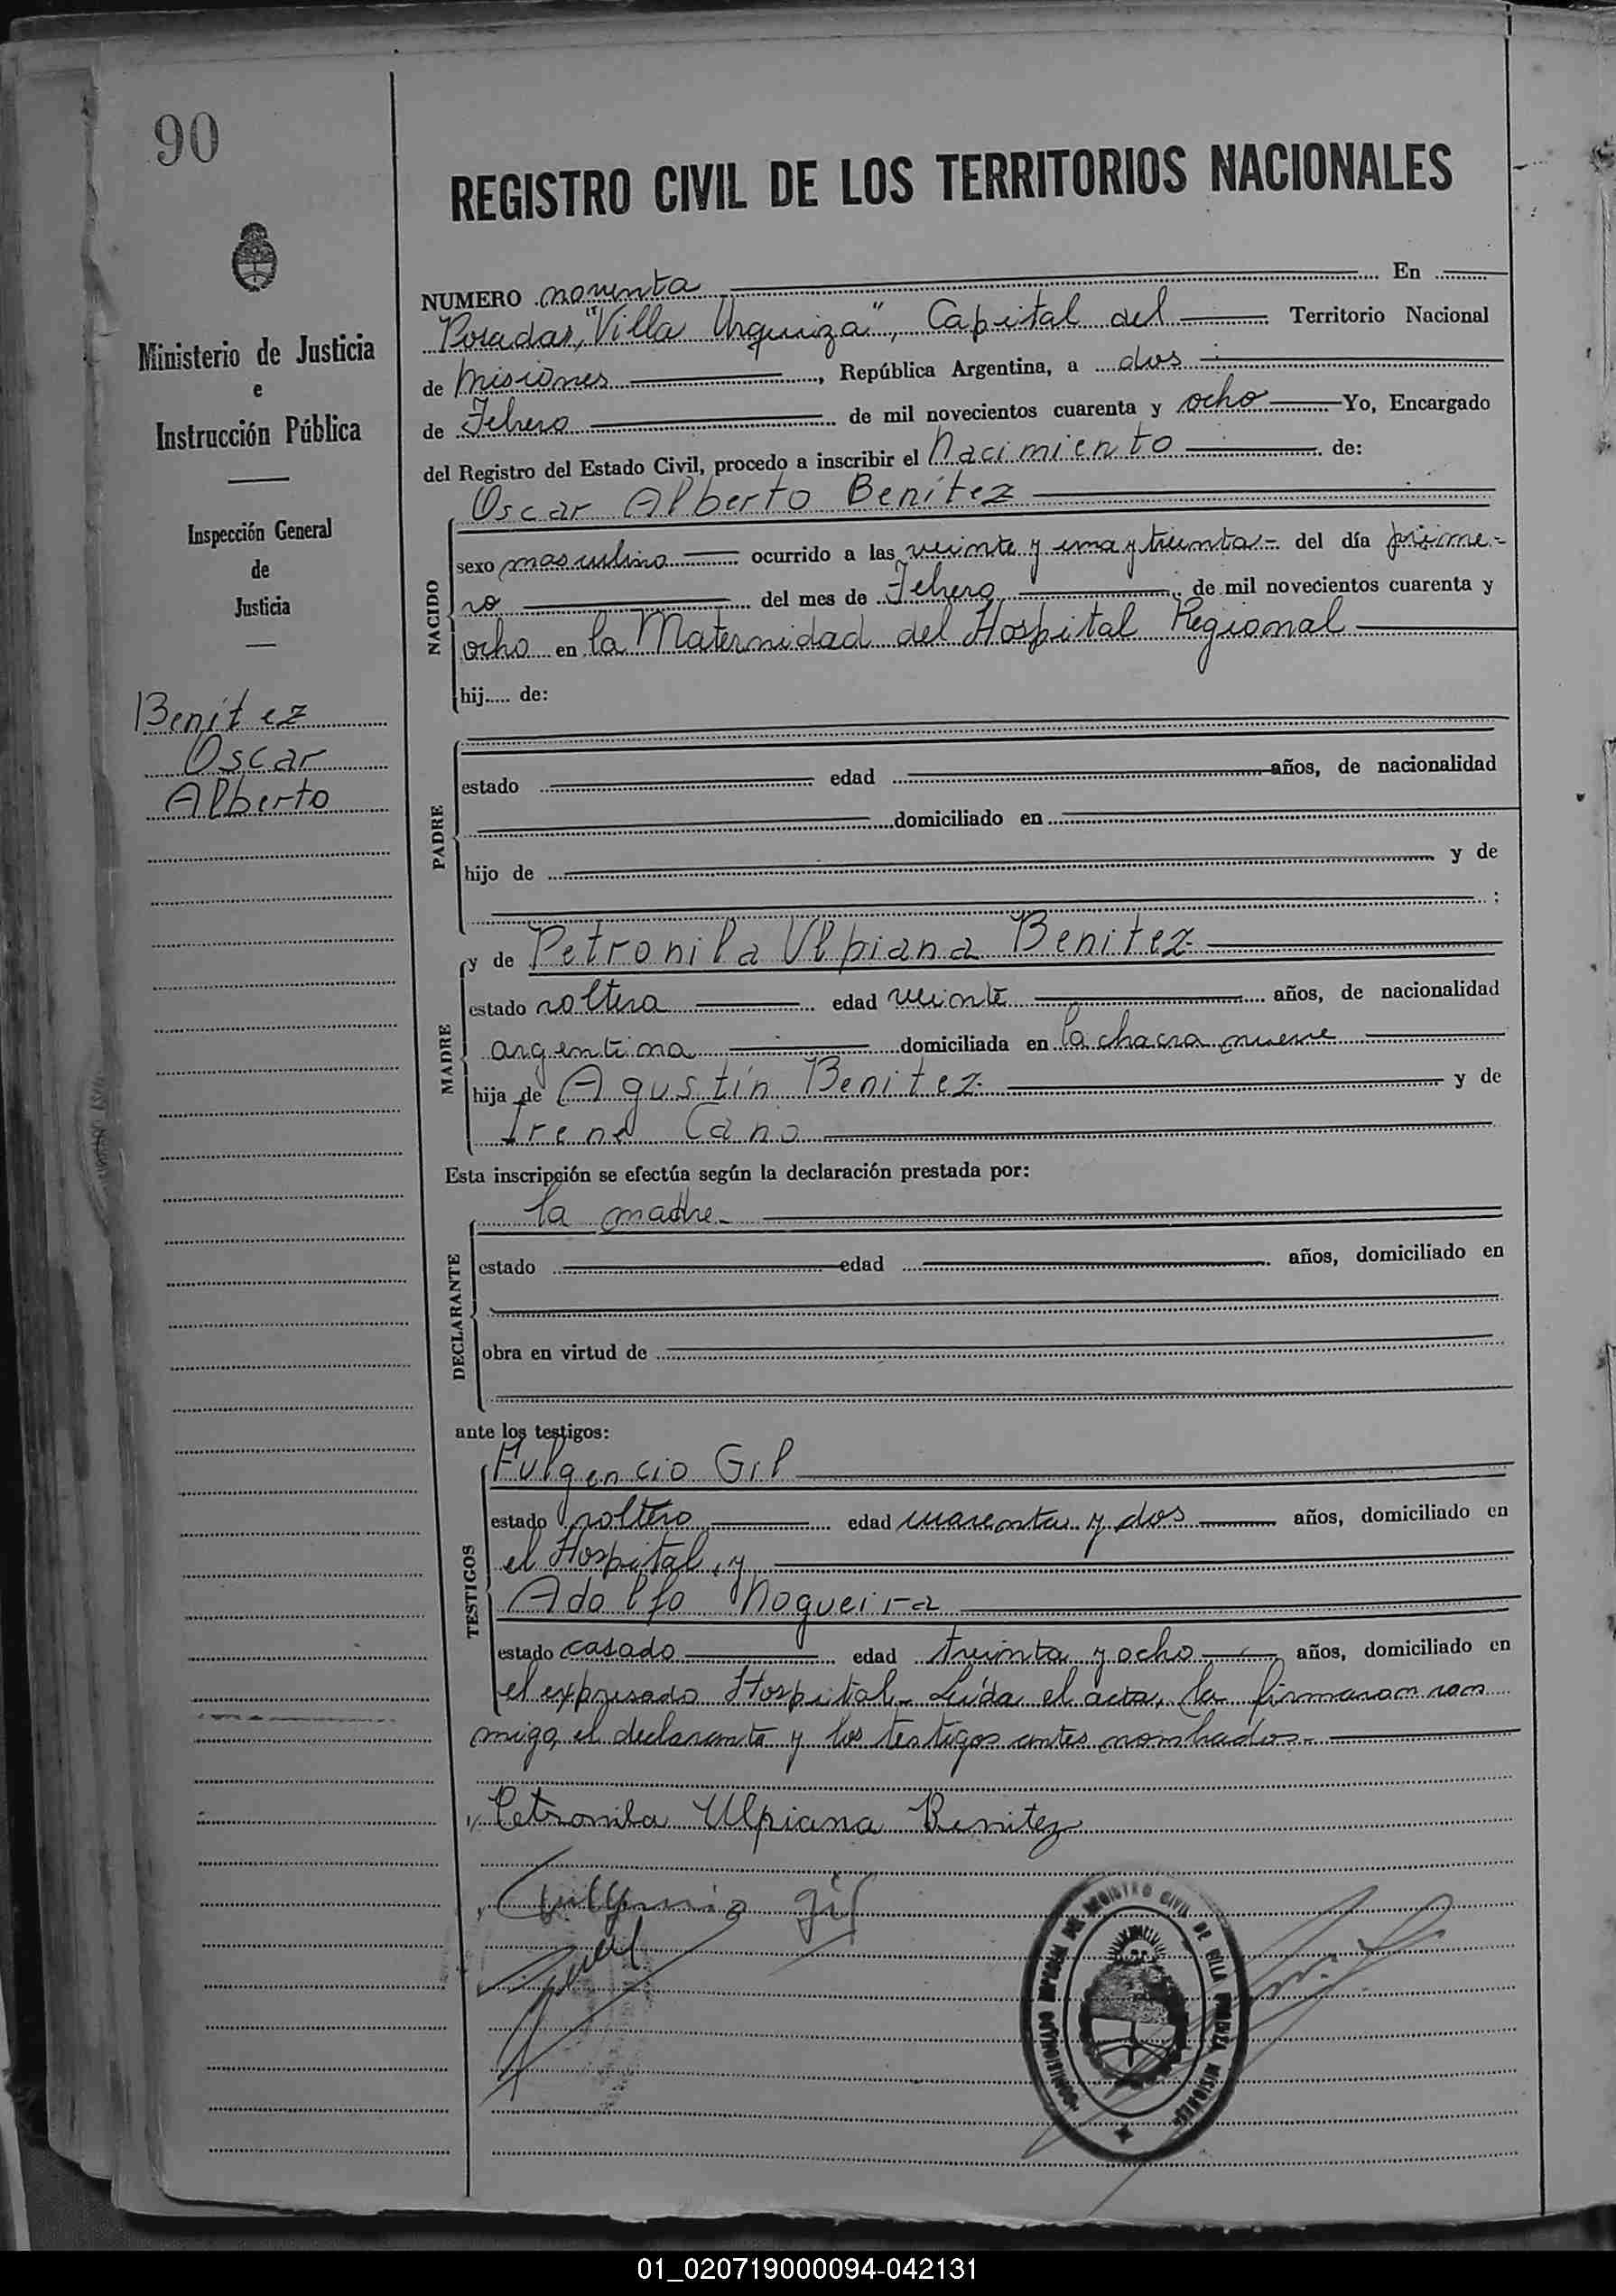 90
REGISTRO CIVIL DE LOS TERRITORIOS NACIONALES
Ministerio de Justicia
e
Instrucción Pública
Inspección General
de
Justicia
Benítez
Oscar
Alberto
NUMERO noventa En
Posadas, "Villa Urquiza", Capital del Territorio Nacional
de Misiones, República Argentina, a dos
de Febrero de mil novecientos cuarenta y ocho Yo, Encargado
del Registro del Estado Civil, procedo a inscribir el Nacimiento de:
Oscar Alberto Benítez
NACIDO
sexo masculino ocurrido a las veinte y una y treinta - del día prime-
ro del mes de Febrero, de mil novecientos cuarenta y
ocho en la Maternidad del Hospital Regional
hij..... de:
PADRE
estado edad años, de nacionalidad
domiciliado en
hijo de y de
;
MADRE
y de Petronila Ulpiana Benitez
estado soltera edad veinte años, de nacionalidad
argentina domiciliada en la chacra nueve
hija de Agustín Benitez y de
Irene Cano
Esta inscripción se efectúa según la declaración prestada por:
DECLARANTE
la madre.
estado edad años, domiciliado en
obra en virtud de
ante los testigos:
TESTIGOS
Fulgencio Gil
estado soltero edad cuarenta y dos años, domiciliado en
el Hospital, y
Adolfo Nogueira
estado casado edad treinta y ocho años, domiciliado en
el expresado Hospital. Leída el acta, la firmaron con
migo, el declarante y los testigos antes nombrados.
Petronila Ulpiana Benitez
Fulgencio Gil
REGISTRO CIVIL DE VILLA URQUIZA MISIONES
01_020719000094-042131